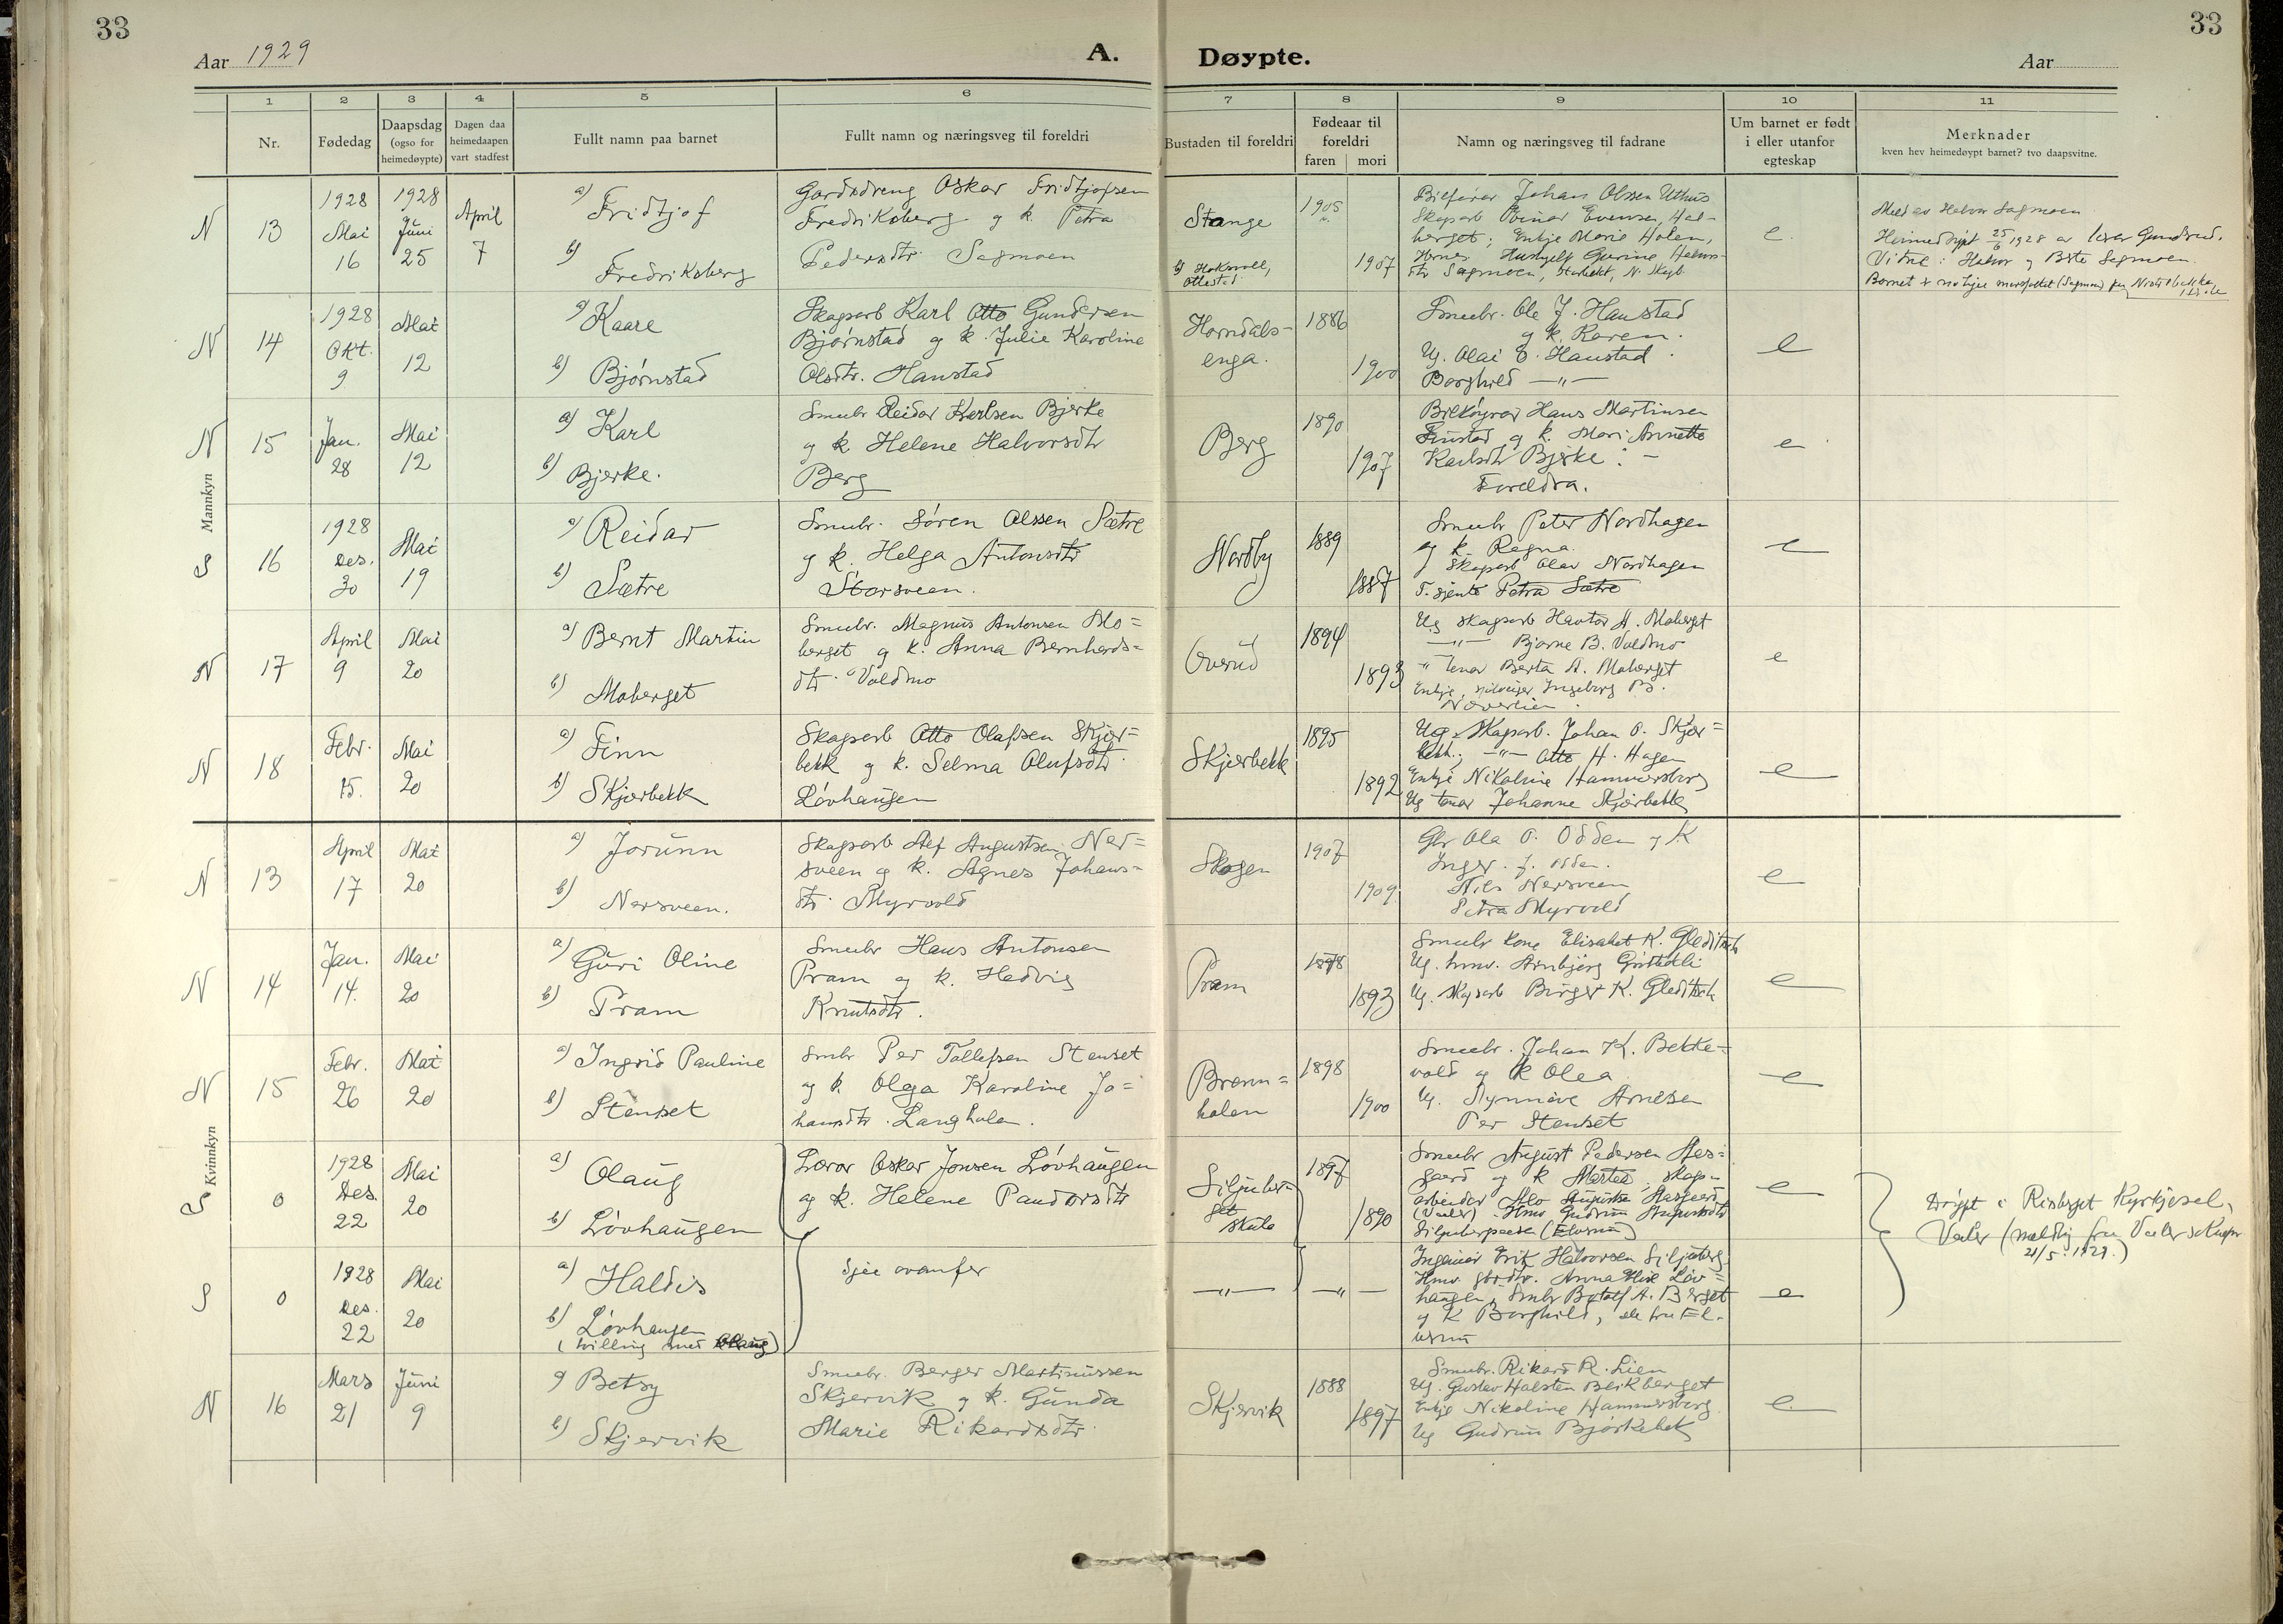 33
33
Aar 1929
A.
Døypte.
Aar
1
2
3
4
5
6
7
8
9
10
11
Nr.
Fødedag
Daapsdag (ogso for heimedøypte)
Dagen daa heimedaapen vart stadfest
Fullt namn paa barnet
Fullt namn og næringsveg til foreldri
Bustaden til foreldri
Fødeaar til foreldri
faren mori
Namn og næringsveg til fadrane
Um barnet er født i eller utanfor egteskap
Merknader
kven hev heimedøypt barnet? tvo daapsvitne.
Mannkyn
N 13
1928 Mai 16
1928 Juni 25
April 7
a) Fridtjof
b) Fredriksberg
Gardsdreng Oskar Fridtjofsen
Fredriksberg og k. Petra
Pedersdtr. Sagmoen
Stange
Ottestad
1905
1907
Bilførar Johan Olssen Uthus
Skogsarb Einar Evensen, Hal-
berget; Enkje Marie Holen,
e.
Meld av Halvor Sagmoen
Heimedøypt 25/6 1928 av
Vitne: Halvor og
N 14
1928 Okt. 9
Mai 12
a) Kaare
b) Bjørnstad
Skogsarb Karl Otto Gundersen
Bjørnstad og k. Julie Karoline
Olsdtr. Hanstad
Horndals-
enga.
1886
1900
Smubr. Ole J. Hanstad
og k. Karen.
Ug. Olai E. Hanstad.
Borghild —"—
e
N 15
Jan. 28
Mai 12
a) Karl
b) Bjerke.
Smubr Reidar Karlsen Bjerke
og k Helene Halvorsdtr
Berg
Berg
1890
1907
Bilkøyrar Hans Martinsen
Finstad og k. Mari Annette
Karlsdtr Bjerke: -
Foreldra.
e
S 16
1928 Des. 30
Mai 19
a) Reidar
b) Sætre
Smubr. Søren Olssen Sætre
og k. Helga Antonsdtr
Storsveen.
Nordby
1889
1887
Smubr Peter Nordhagen
og k. Ragna.
Skogsarb Olav Nordhagen
T. gjente Petra Sætre
e
N 17
April 9
Mai 20
a) Bernt Martin
b) Moberget
Smubr. Magnus Antonsen Mo=
berget og k. Anna Bernhards=
dtr. Voldmo
Øverud
1894
1893
Ug skogsarb Hantor A. Moberget
—"— Bjarne B. Voldmo
" tenar Berta A. Moberget
Ingeborg B.
e
N 18
Febr. 15.
Mai 20
a) Finn
b) Skjærbekk
Skogsarb Otto Olafsen Skjær=
bekk og k. Selma Olufsdtr.
Løvhaugen
Skjærbekk
1895
1892
Ug. Skogsarb. Johan O. Skjær=
bekk; —"— Otto H. Hagen
Enkje Nikoline Hammersberg
Ug tenar Johanne Skjærbekk
e
Kvinnkyn
N 13
April 17
Mai 20
a) Jorunn
b) Nersveen.
Skogsarb Alf Augustsen Ner=
sveen og k. Agnes Johans=
dtr. Myrvold
Skogen
1907
1909
Gbr Ola O. Odden og k
Inger. J. Odden.
Nils Nersveen
Petra Myrvold
e
N 14
Jan. 14.
Mai 20
a) Guri Oline
b) Pram
Smubr Hans Antonsen
Pram og k. Hedvig
Knutsdtr.
Pram
1898
1893
Smubr kone Elisabet K. Gleditsch
Ug. hmv. Arnbjørg
Ug. skogsarb Birger K. Gleditsch
e
N 15
Febr. 26
Mai 20
a) Ingrid Pauline
b) Stenset
Smbr Per Tollefsen Stenset
og k Olga Karoline Jo=
hansdtr. Langholen.
Brenn=
holen
1898
1900
Smubr. Johan K. Bekke=
vold og k Olea
Ug. Synnøve Arnesen
Per Stenset
e
S 0
1928 Des. 22
Mai 20
a) Olaug
b) Løvhaugen
Lærar Oskar Jonsen Løvhaugen
og k. Helene Paudersdtr
Siljuber-
get
skule
1897
1890
Smubr August Pedersen Aas=
gaard og k Martea, skogs-
arbeidar
(Elverum)
e
Døypt i Risberget Kyrkjesokn,
Vaaler
21/5 1929.)
S 0
1928 Des. 22
Mai 20
a) Haldis
b) Løvhaugen
(tvilling med Olaug)
Sjåe ovanfor
—"—
—"—
Ingeniør Erik Halvorsen Siljuberg.
Hmv gbrdtr. Anna Løv=
haugen, Smbr Botolf A. Berget
og k Borghild, alle fraa El-
verum
e
N 16
Mars 21
Juni 9
a) Betsy
b) Skjervik
Smubr. Berger Martinussen
Skjervik og k. Gunda
Marie Rikardsdtr.
Skjervik
1888
1897
Smubr. Rikard R. Lien
Ug. Gustav Halsten Beikberget
Enkje Nikoline Hammersberg
Ug Gudrun Bjørkebek
e